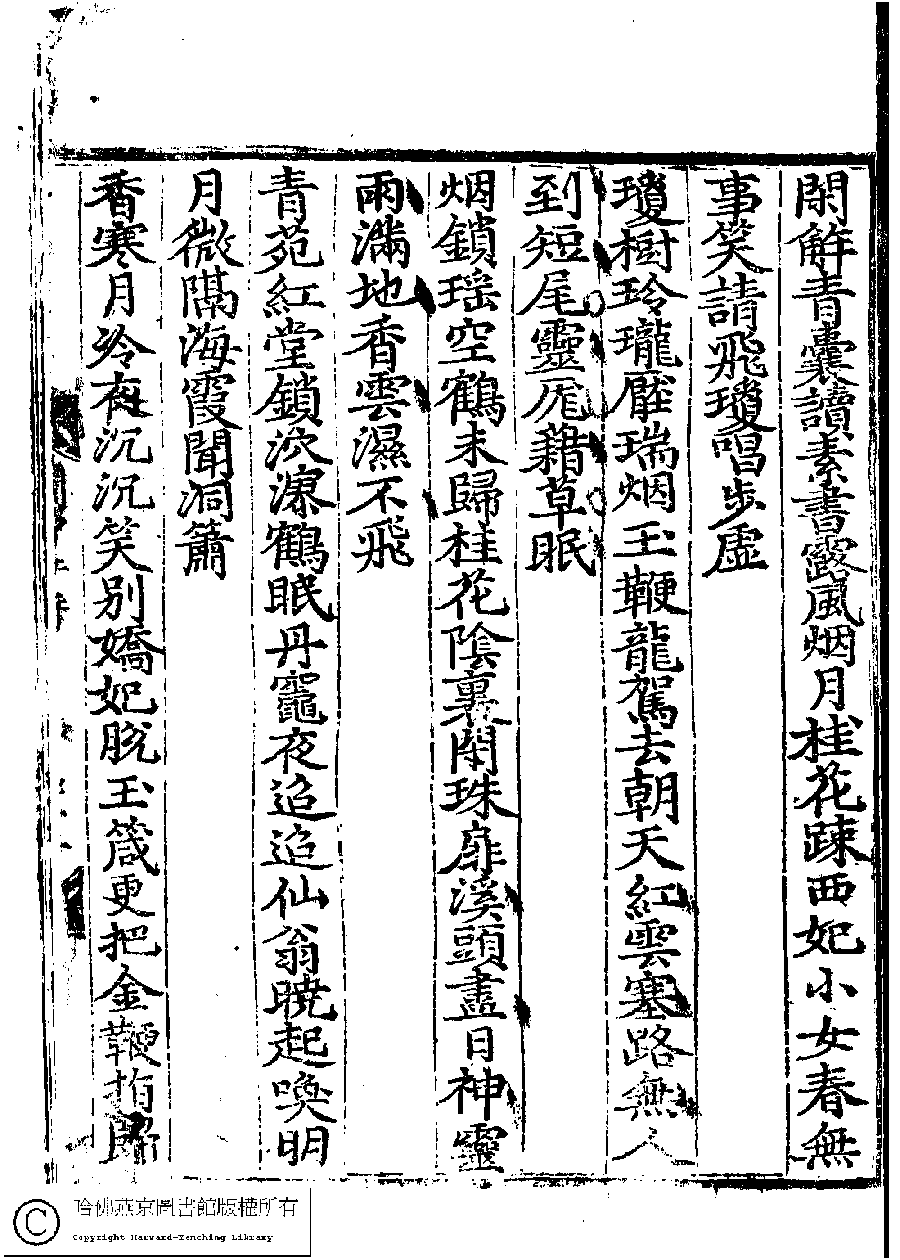 閑解青囊讀素書露風烟月桂花踈西妃小女春無
事笑請飛瓊唱步虛
瓊樹玲瓏壓瑞烟玉鞭龍駕去朝天紅雲塞路無人
到短尾靈厖藉草眠
烟鎖瑤空鶴未歸桂花陰裏閉珠扉溪頭盡日神靈
雨滿地香雲濕不飛
青苑紅堂鎖泬漻鶴眠丹竈夜迢迢仙翁曉起喚明
月微隔海霞聞洞簫
香寒月冷夜沉沉笑別嬌妃脫玉箴更把金鞭指歸
哈佛燕京圖書館版權所有
Copyright Harvard-Yenching Library